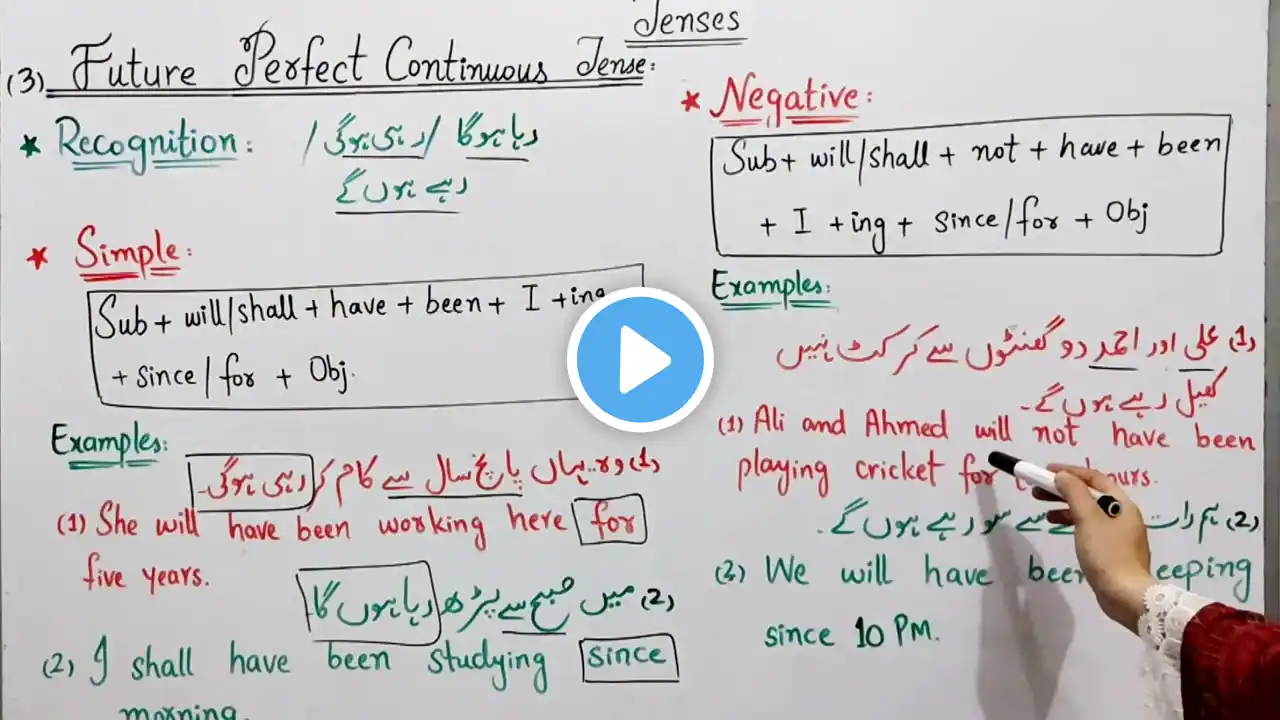 Tenses
(3) Future Perfect Continuous Tense:
★ Recognition: رہا ہوگا / رہی ہوگی /
رہے ہوں گے
★ Simple:
Sub + will/shall + have + been + I + ing
+ since / for + Obj.
Examples:
(1) وہ یہاں پانچ سال سے کام کر رہی ہوگی۔
(1) She will have been working here for
five years.
(2) میں صبح سے پڑھ رہا ہوں گا۔
(2) I shall have been studying since
morning.
★ Negative:
Sub + will/shall + not + have + been
+ I + ing + since / for + Obj
Examples:
(1) علی اور احمد دو گھنٹوں سے کرکٹ نہیں
کھیل رہے ہوں گے۔
(1) Ali and Ahmed will not have been
playing cricket for hours.
(2) ہم رات سے سو رہے ہوں گے۔
(2) We will have been eeping
since 10 PM.